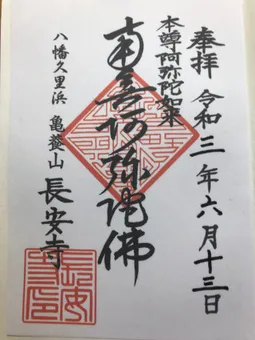 奉拝 令和三年六月十三日
本尊阿弥陀如来
南無阿弥陀佛
八幡久里浜 亀養山
長安寺